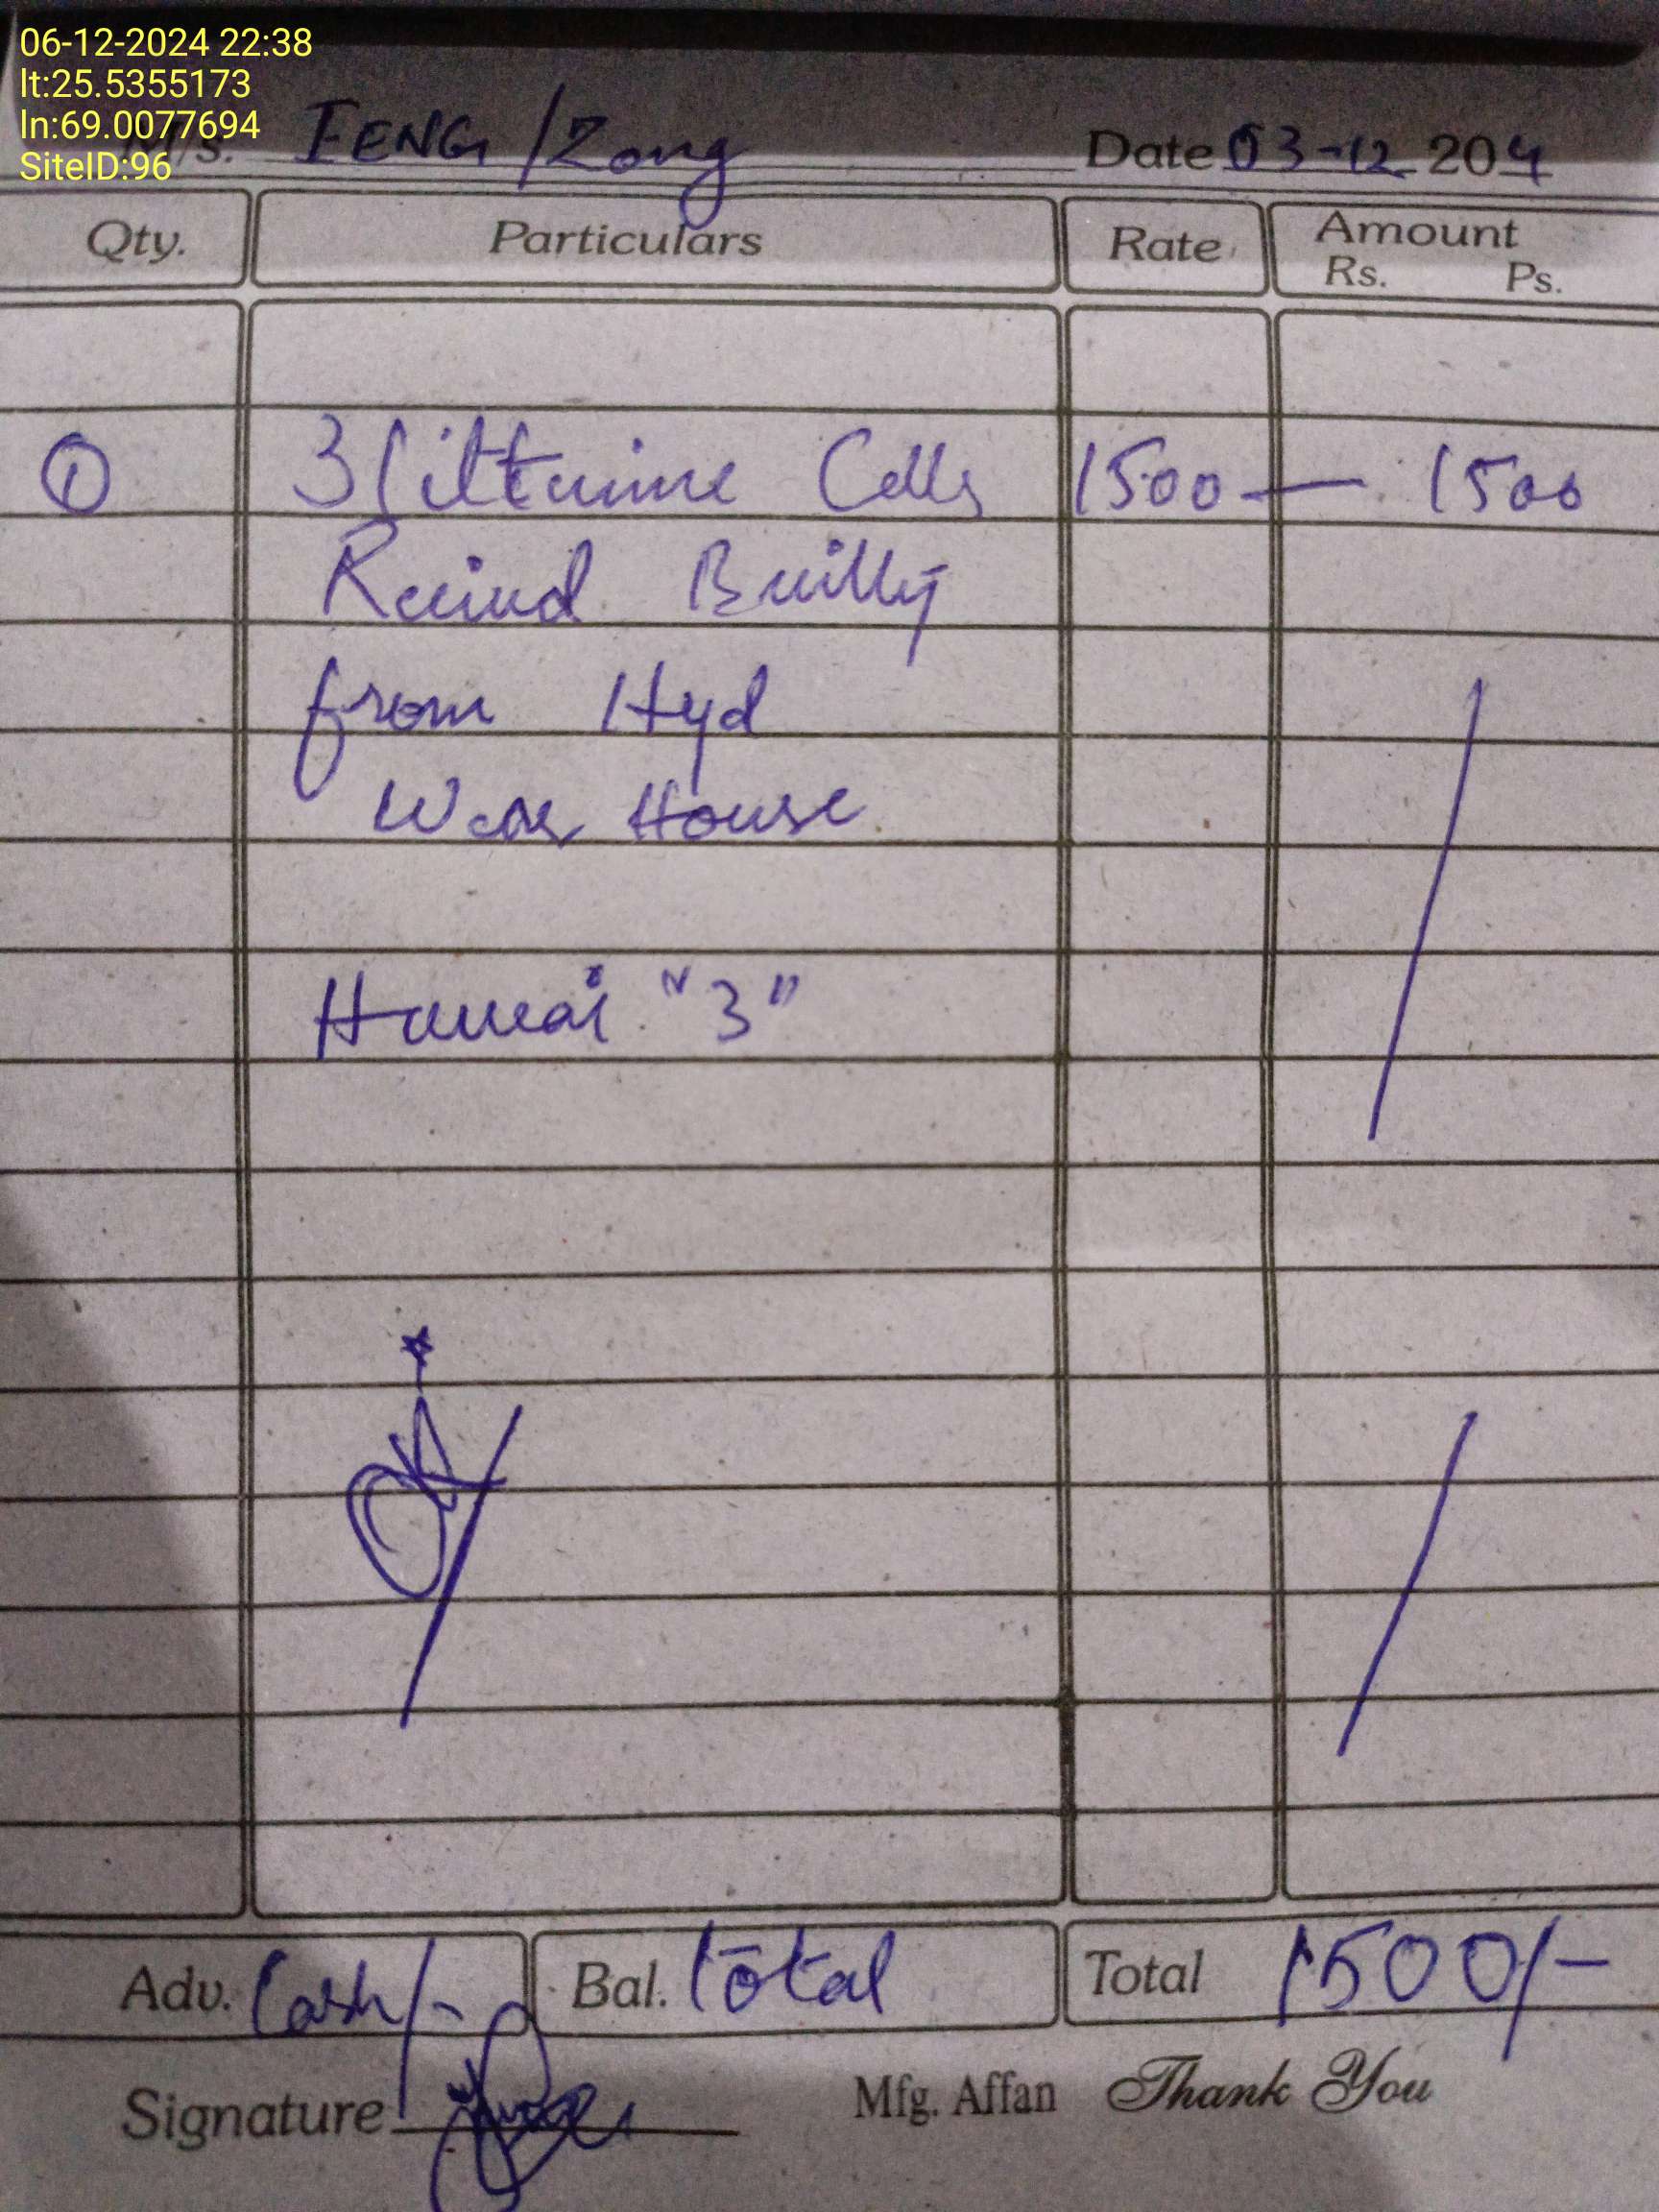 06-12-2024 22:38
lt:25.5355173
ln:69.0077694
SiteID:96
M/s. FENG/Zong Date 03-12 204
Qty. Particulars Rate Amount
Rs. Ps.
① 3 Cells 1500 — 1500
from Hyd
House
"3"
Adv. Cash/- Bal. total Total 1500/-
Signature Mfg. Affan Thank You